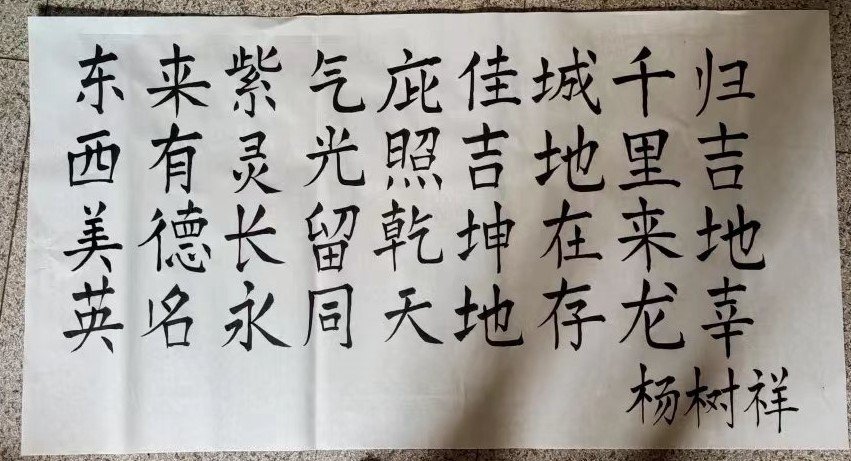 东来紫气庇佳城千归
西有灵光照吉地里吉
美德长留乾坤在来地
英名永同天地存龙幸
杨树祥